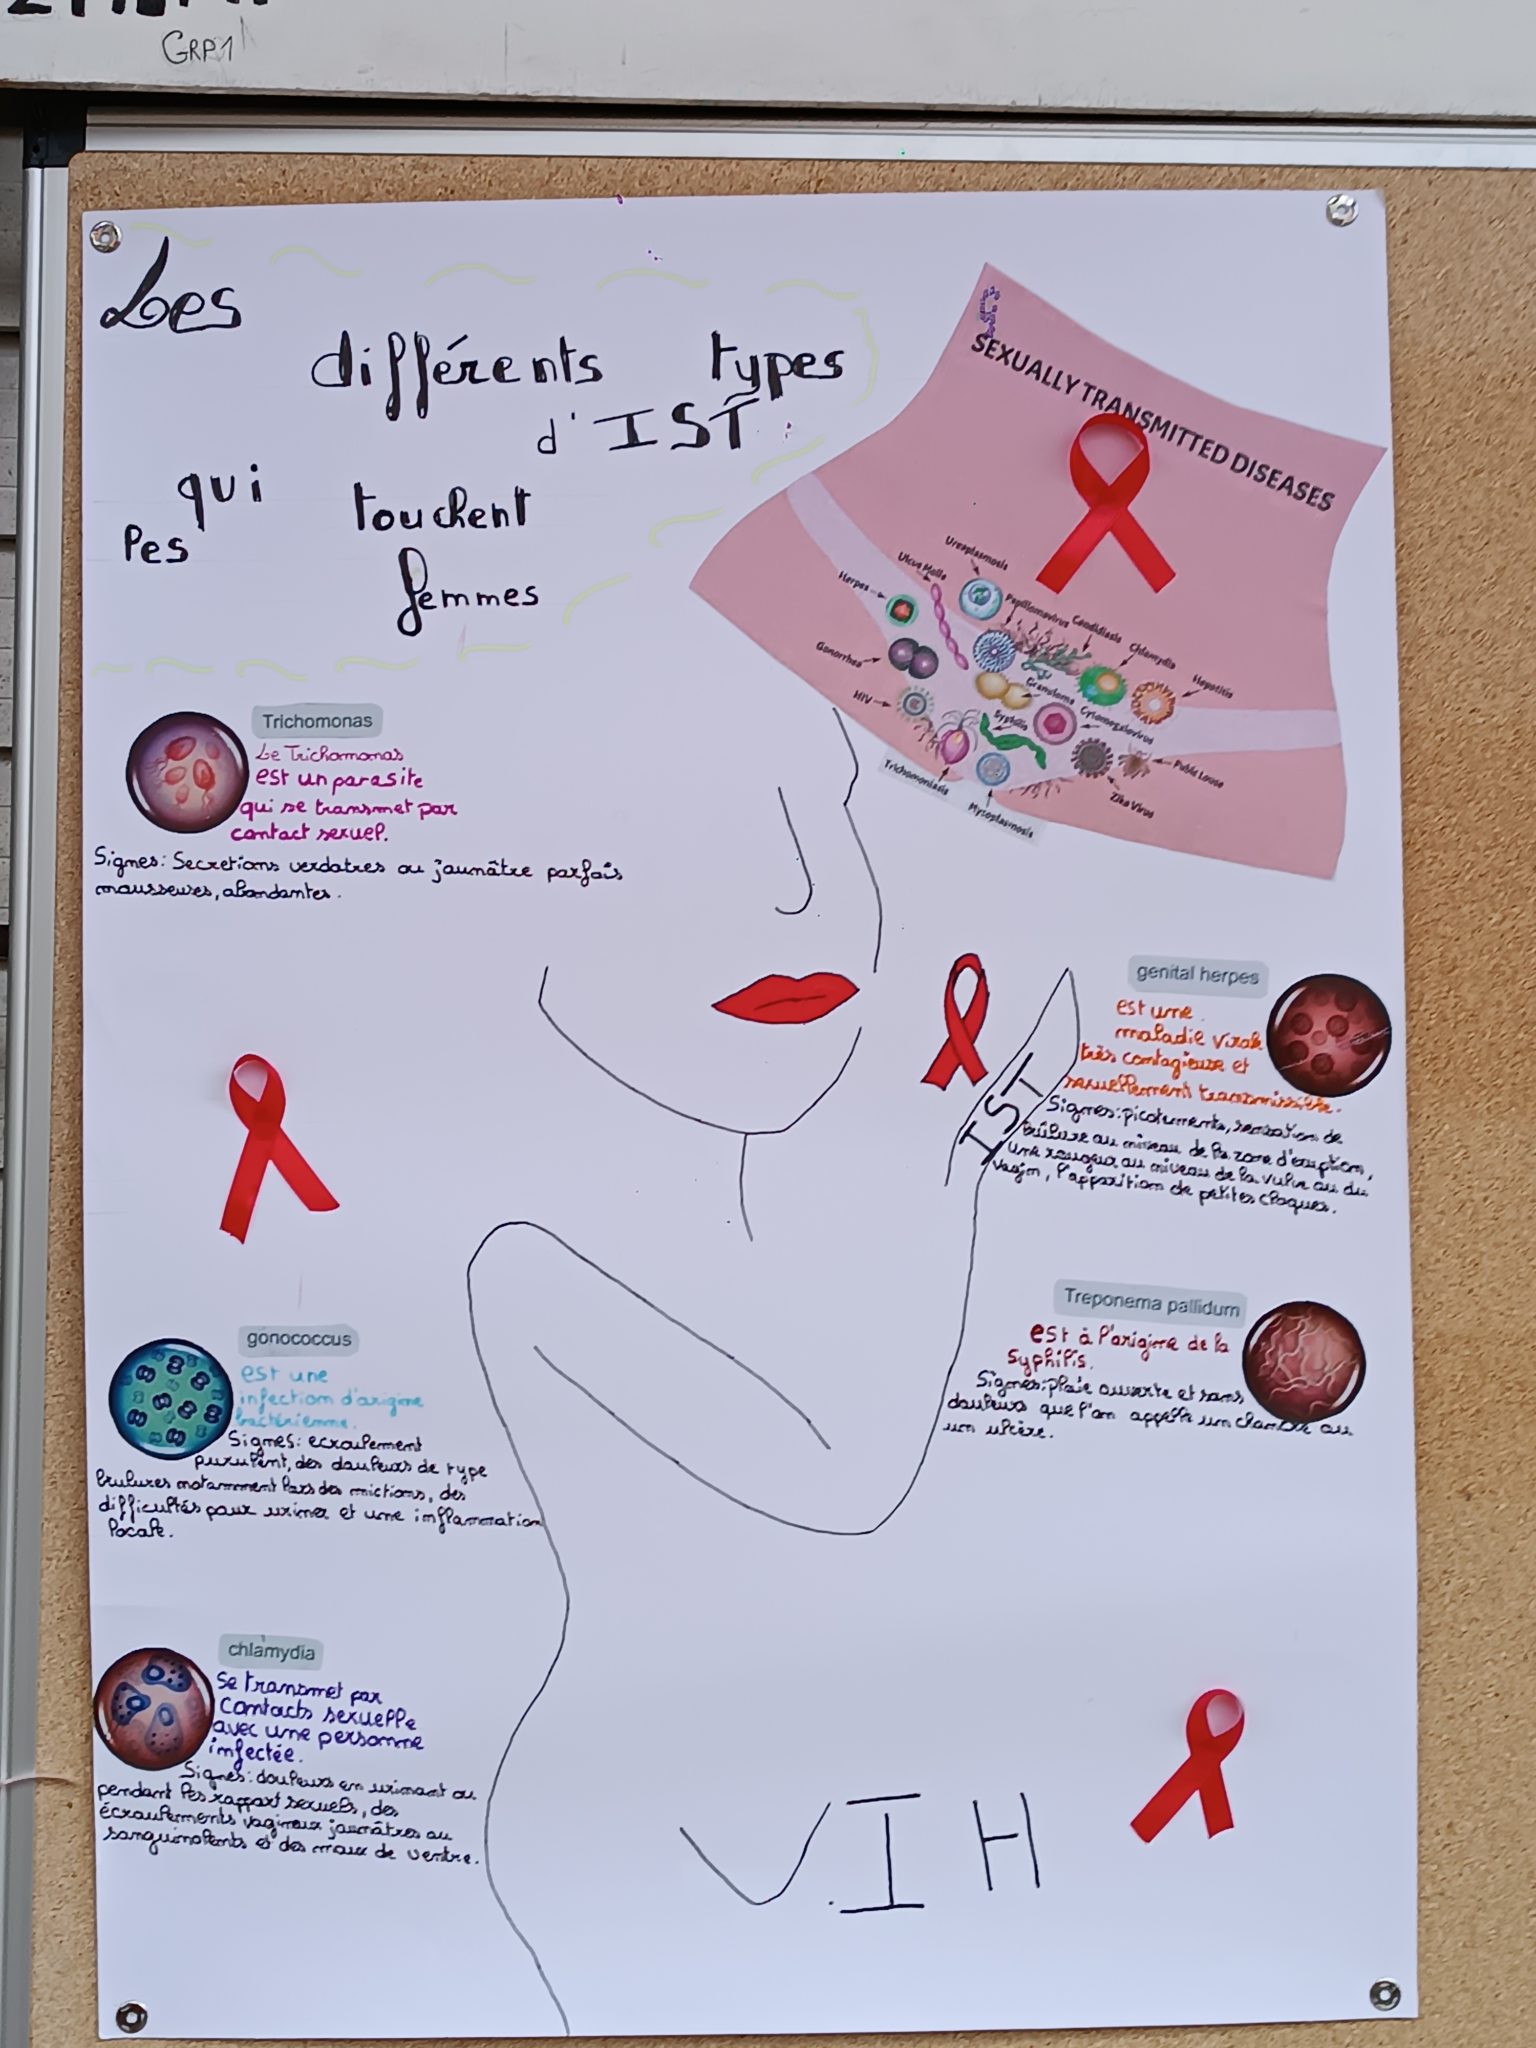 GRP1
Les
différents types
d'IST
qui touchent
les
femmes
SEXUALLY TRANSMITTED DISEASES
Ureaplasmosis
Ulcus Molle
Herpes
Papillomavirus
Candidiasis
Chlamydia
Hepatitis
Gonorrhea
Granuloma
HIV
Syphilis
Cytomegalovirus
Trichomoniasis
Mycoplasmosis
Zika Virus
Pubic Louse
Trichomonas
Le Trichomonas
est un parasite
qui se transmet par
contact sexuel.
Signes: Secretions verdatres ou jaunâtre parfois
mousseuses, abondantes.
genital herpes
est une
maladie virale
très contagieuse et
sexuellement transmissible.
Signes: picotements, sensation de
brûlure au niveau de la zone d'éruption,
une rougeur au niveau de la vulve ou du
vagin, l'apparition de petites cloques.
IST
Treponema pallidum
est à l'origine de la
syphilis.
Signes: plaie ouverte et sans
douleurs que l'on appelle un chancre ou
un ulcère.
gonococcus
est une
infection d'origine
bactérienne.
Signes: ecroulement
purulent, des douleurs de type
brulures notamment lors des mictions, des
difficultés pour uriner et une inflammation
locale.
chlamydia
se transmet par
contacts sexuelle
avec une personne
infectée.
Signes: douleurs en urinant ou
pendant les rapport sexuels, des
écroulements vaginaux jaunâtres ou
sanguinolents et des maux de ventre.
VIH